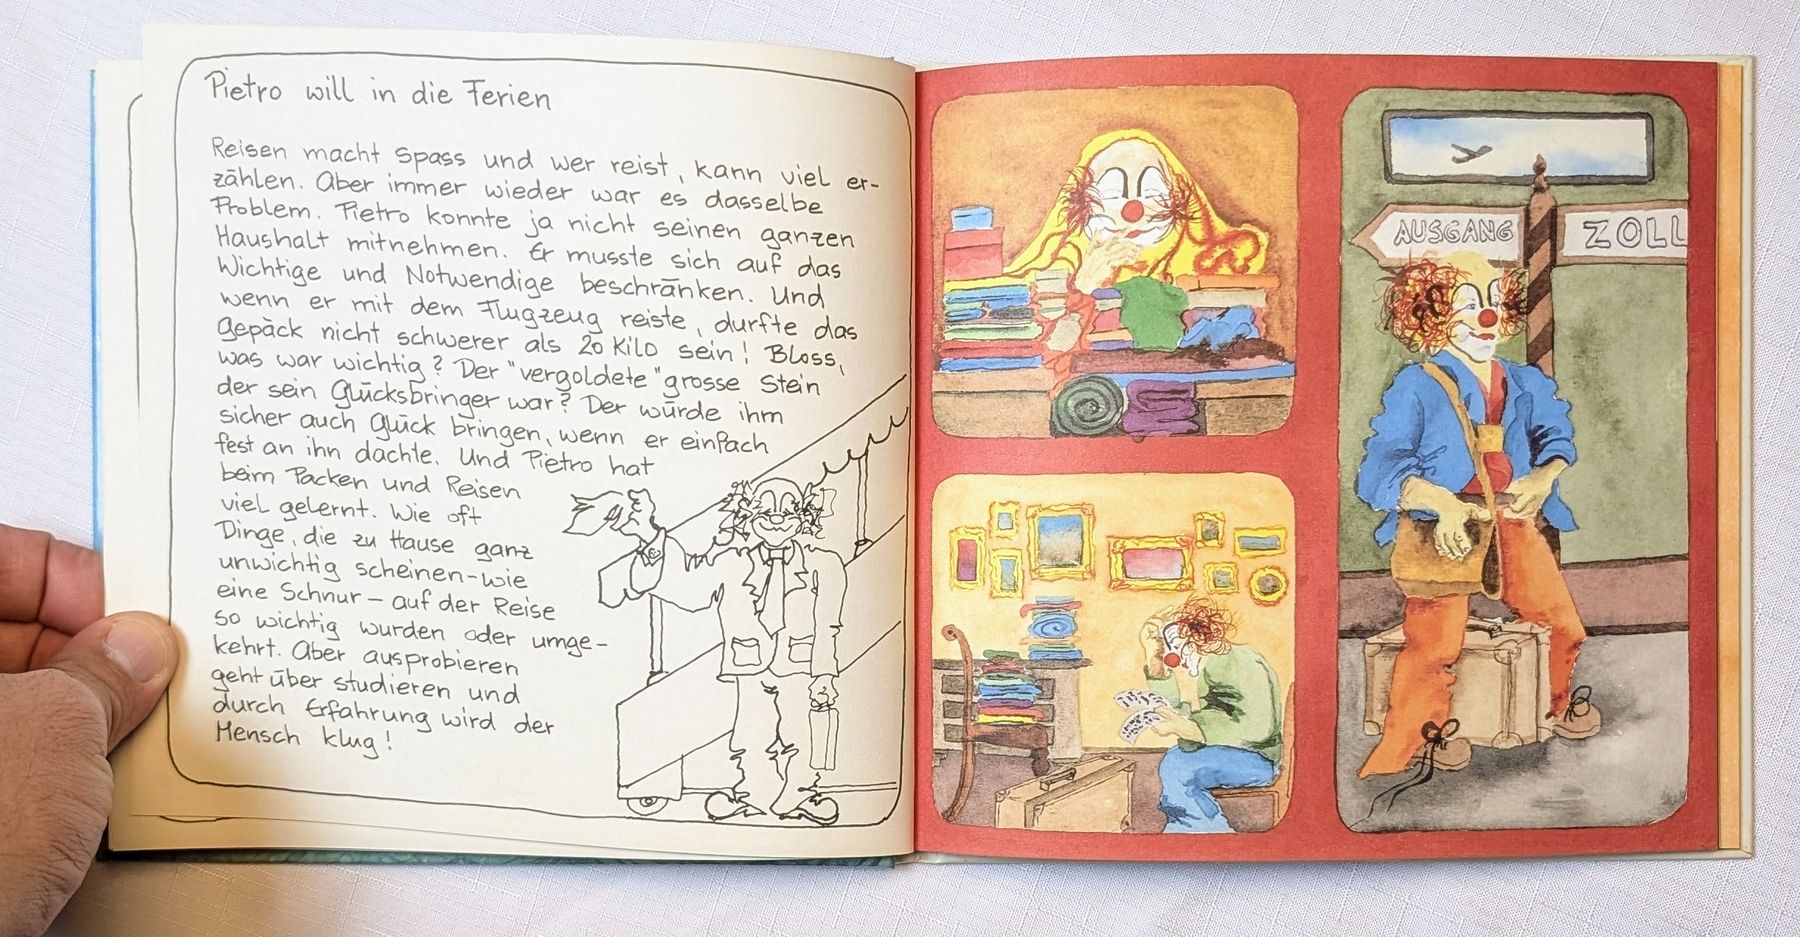 Pietro will in die Ferien
Reisen macht Spass und wer reist, kann viel er-
zählen. Aber immer wieder war es dasselbe
Problem. Pietro konnte ja nicht seinen ganzen
Haushalt mitnehmen. Er musste sich auf das
Wichtige und Notwendige beschränken. Und
wenn er mit dem Flugzeug reiste, durfte das
Gepäck nicht schwerer als 20 Kilo sein! Bloss,
was war wichtig? Der "vergoldete" grosse Stein
der sein Glücksbringer war? Der würde ihm
sicher auch Glück bringen, wenn er einfach
fest an ihn dachte. Und Pietro hat
beim Packen und Reisen
viel gelernt. Wie oft
Dinge, die zu Hause ganz
unwichtig scheinen - wie
eine Schnur - auf der Reise
so wichtig wurden oder umge-
kehrt. Aber ausprobieren
geht über studieren und
durch Erfahrung wird der
Mensch klug!
AUSGANG
ZOLL